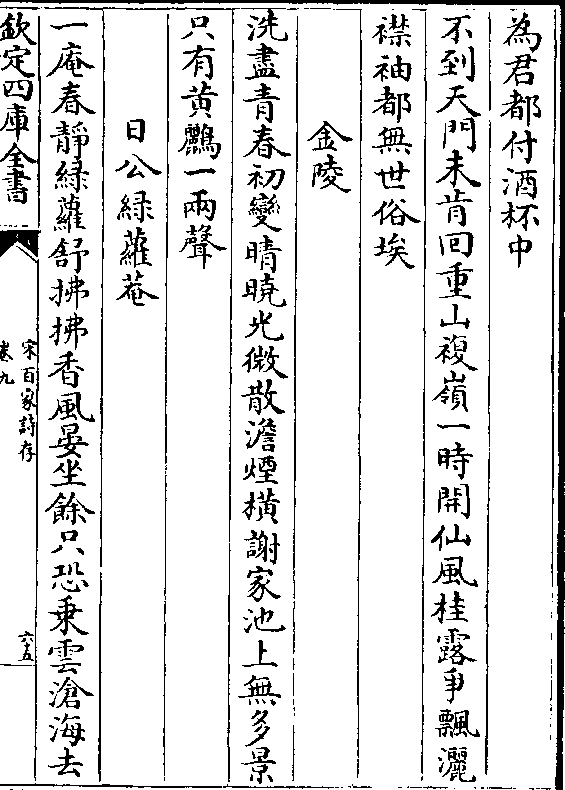 為君都付酒杯中
不到天門未肯回重山複嶺一時開仙風桂露爭飄灑
襟袖都無世俗埃
金陵
洗盡青春初變晴曉光微散澹煙橫謝家池上無多景
只有黃鸝一兩聲
日公綠蘿菴
一庵春靜綠蘿舒拂拂香風晏坐餘只恐乗雲滄海去
欽定四庫全書
宋百家詩存
卷九
六五